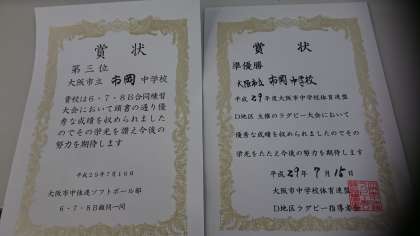 賞状
第三位
大阪市立 市岡 中学校
貴校は６・７・８B合同練習
大会において頭書の通り優
秀な成績を収められました
のでその栄光を讃え今後の
努力を期待します
平成２９年７月１６日
大阪市中体連ソフトボール部
６・７・８B顧問一同
賞状
準優勝
大阪市立 市岡中学校
平成 29年度大阪市中学校体育連盟
D地区 主催のラグビー大会において
優秀な成績を収められましたのでその
栄光をたたえ今後の努力を期待します
平成 29年 7月 15日
大阪市中学校体育連盟
D地区ラグビー指導者会